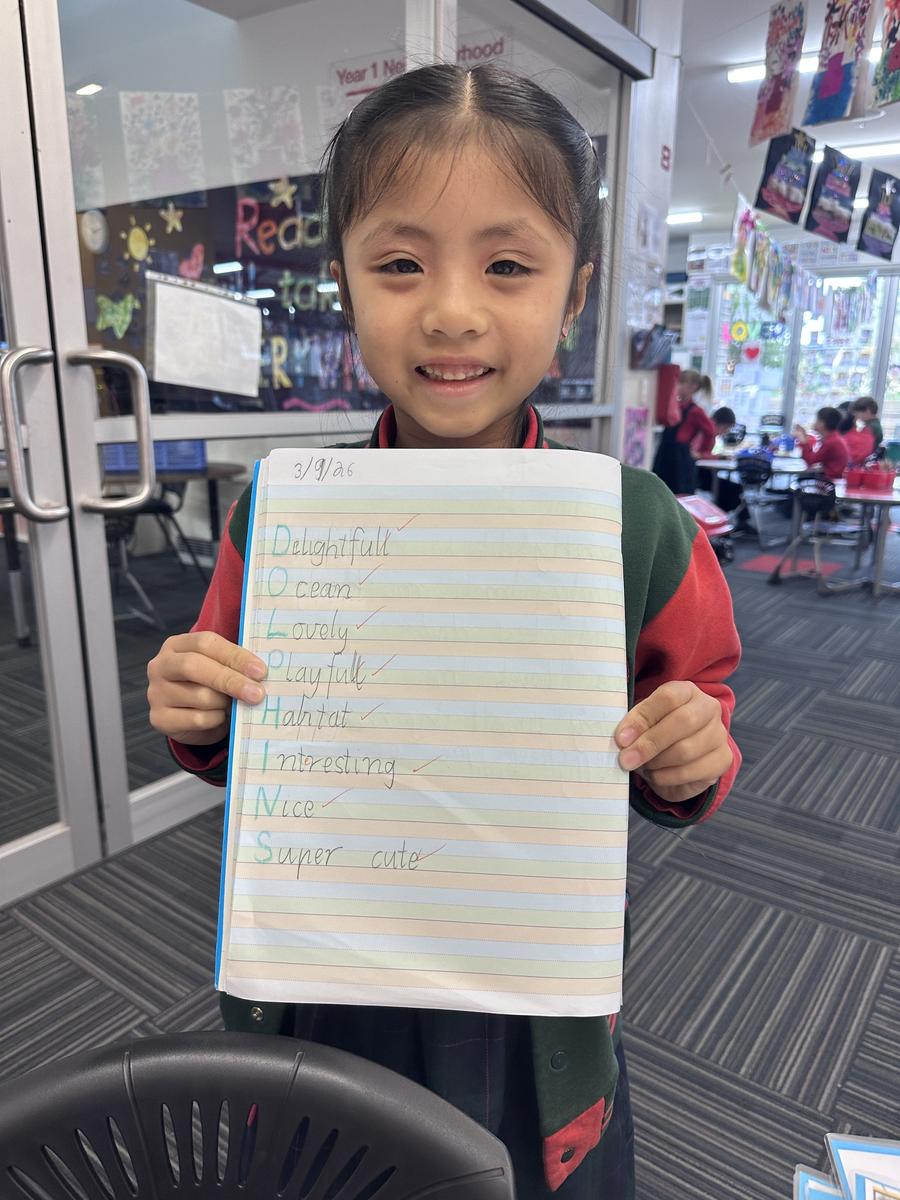 Year 1 Nei rhood
Read
tak
ER
8
3/9/26
Delightfull
Ocean
Lovely
Playfull
Habitat
Intresting
Nice
Super cute